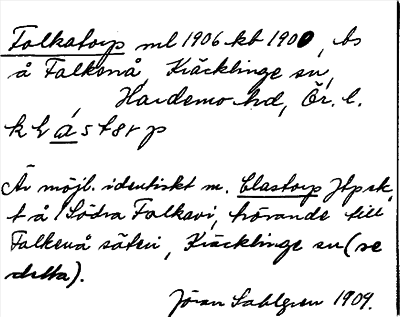 Falkatorp ml 1906 kb 1900, bs
å Falkenå, Kräcklinge sn,
Hardemo hd, Ör. l.
Är möjl. identiskt m. Clastorp Jtp sk,
t å Södra Falkavi, hörande till
Falkenå säteri, Kräcklinge sn (se
detta).
Jöran Sahlgren 1909.